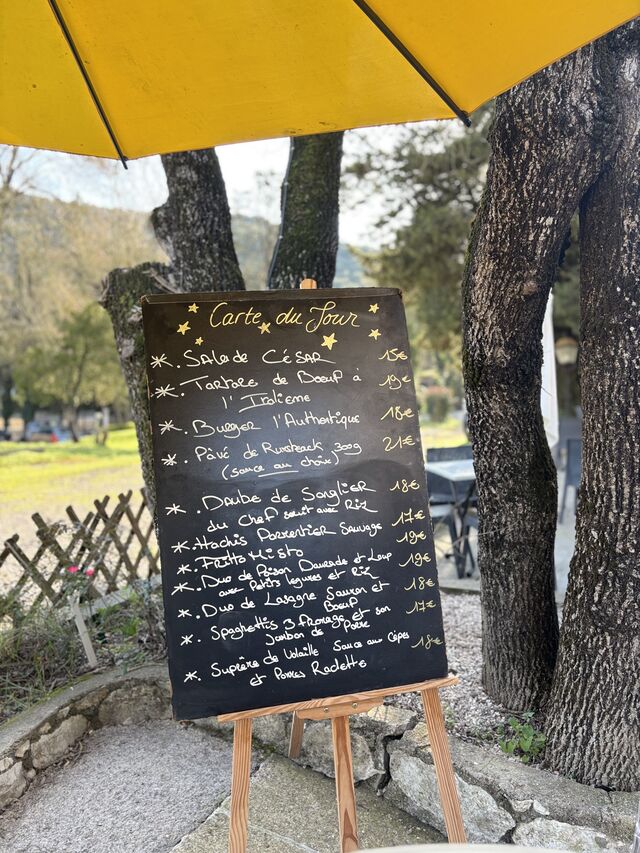 Carte du Jour
* . SALADE CÉSAR 15€
* . Tartare de Boeuf à 19€
l'Italienne
* . Burger l'Authentique 18€
* . Pavé de Rumsteack 300g 21€
(sauce au choix)
* . Daube de Sanglier 18€
du Chef servit avec Riz
* . Hachis Parmentier Sauvage 17€
* . Fritto Misto 19€
* . Duo de Poison Daurade et Loup 19€
avec Petits legumes et Riz
* . Duo de Lasagne Saumon et 18€
Boeuf
* . Spaghettis 3 fromage et son 17€
Jambon de Parme
* . Suprême de Volaille Sauce aux Cèpes 18€
et Pommes Raclette